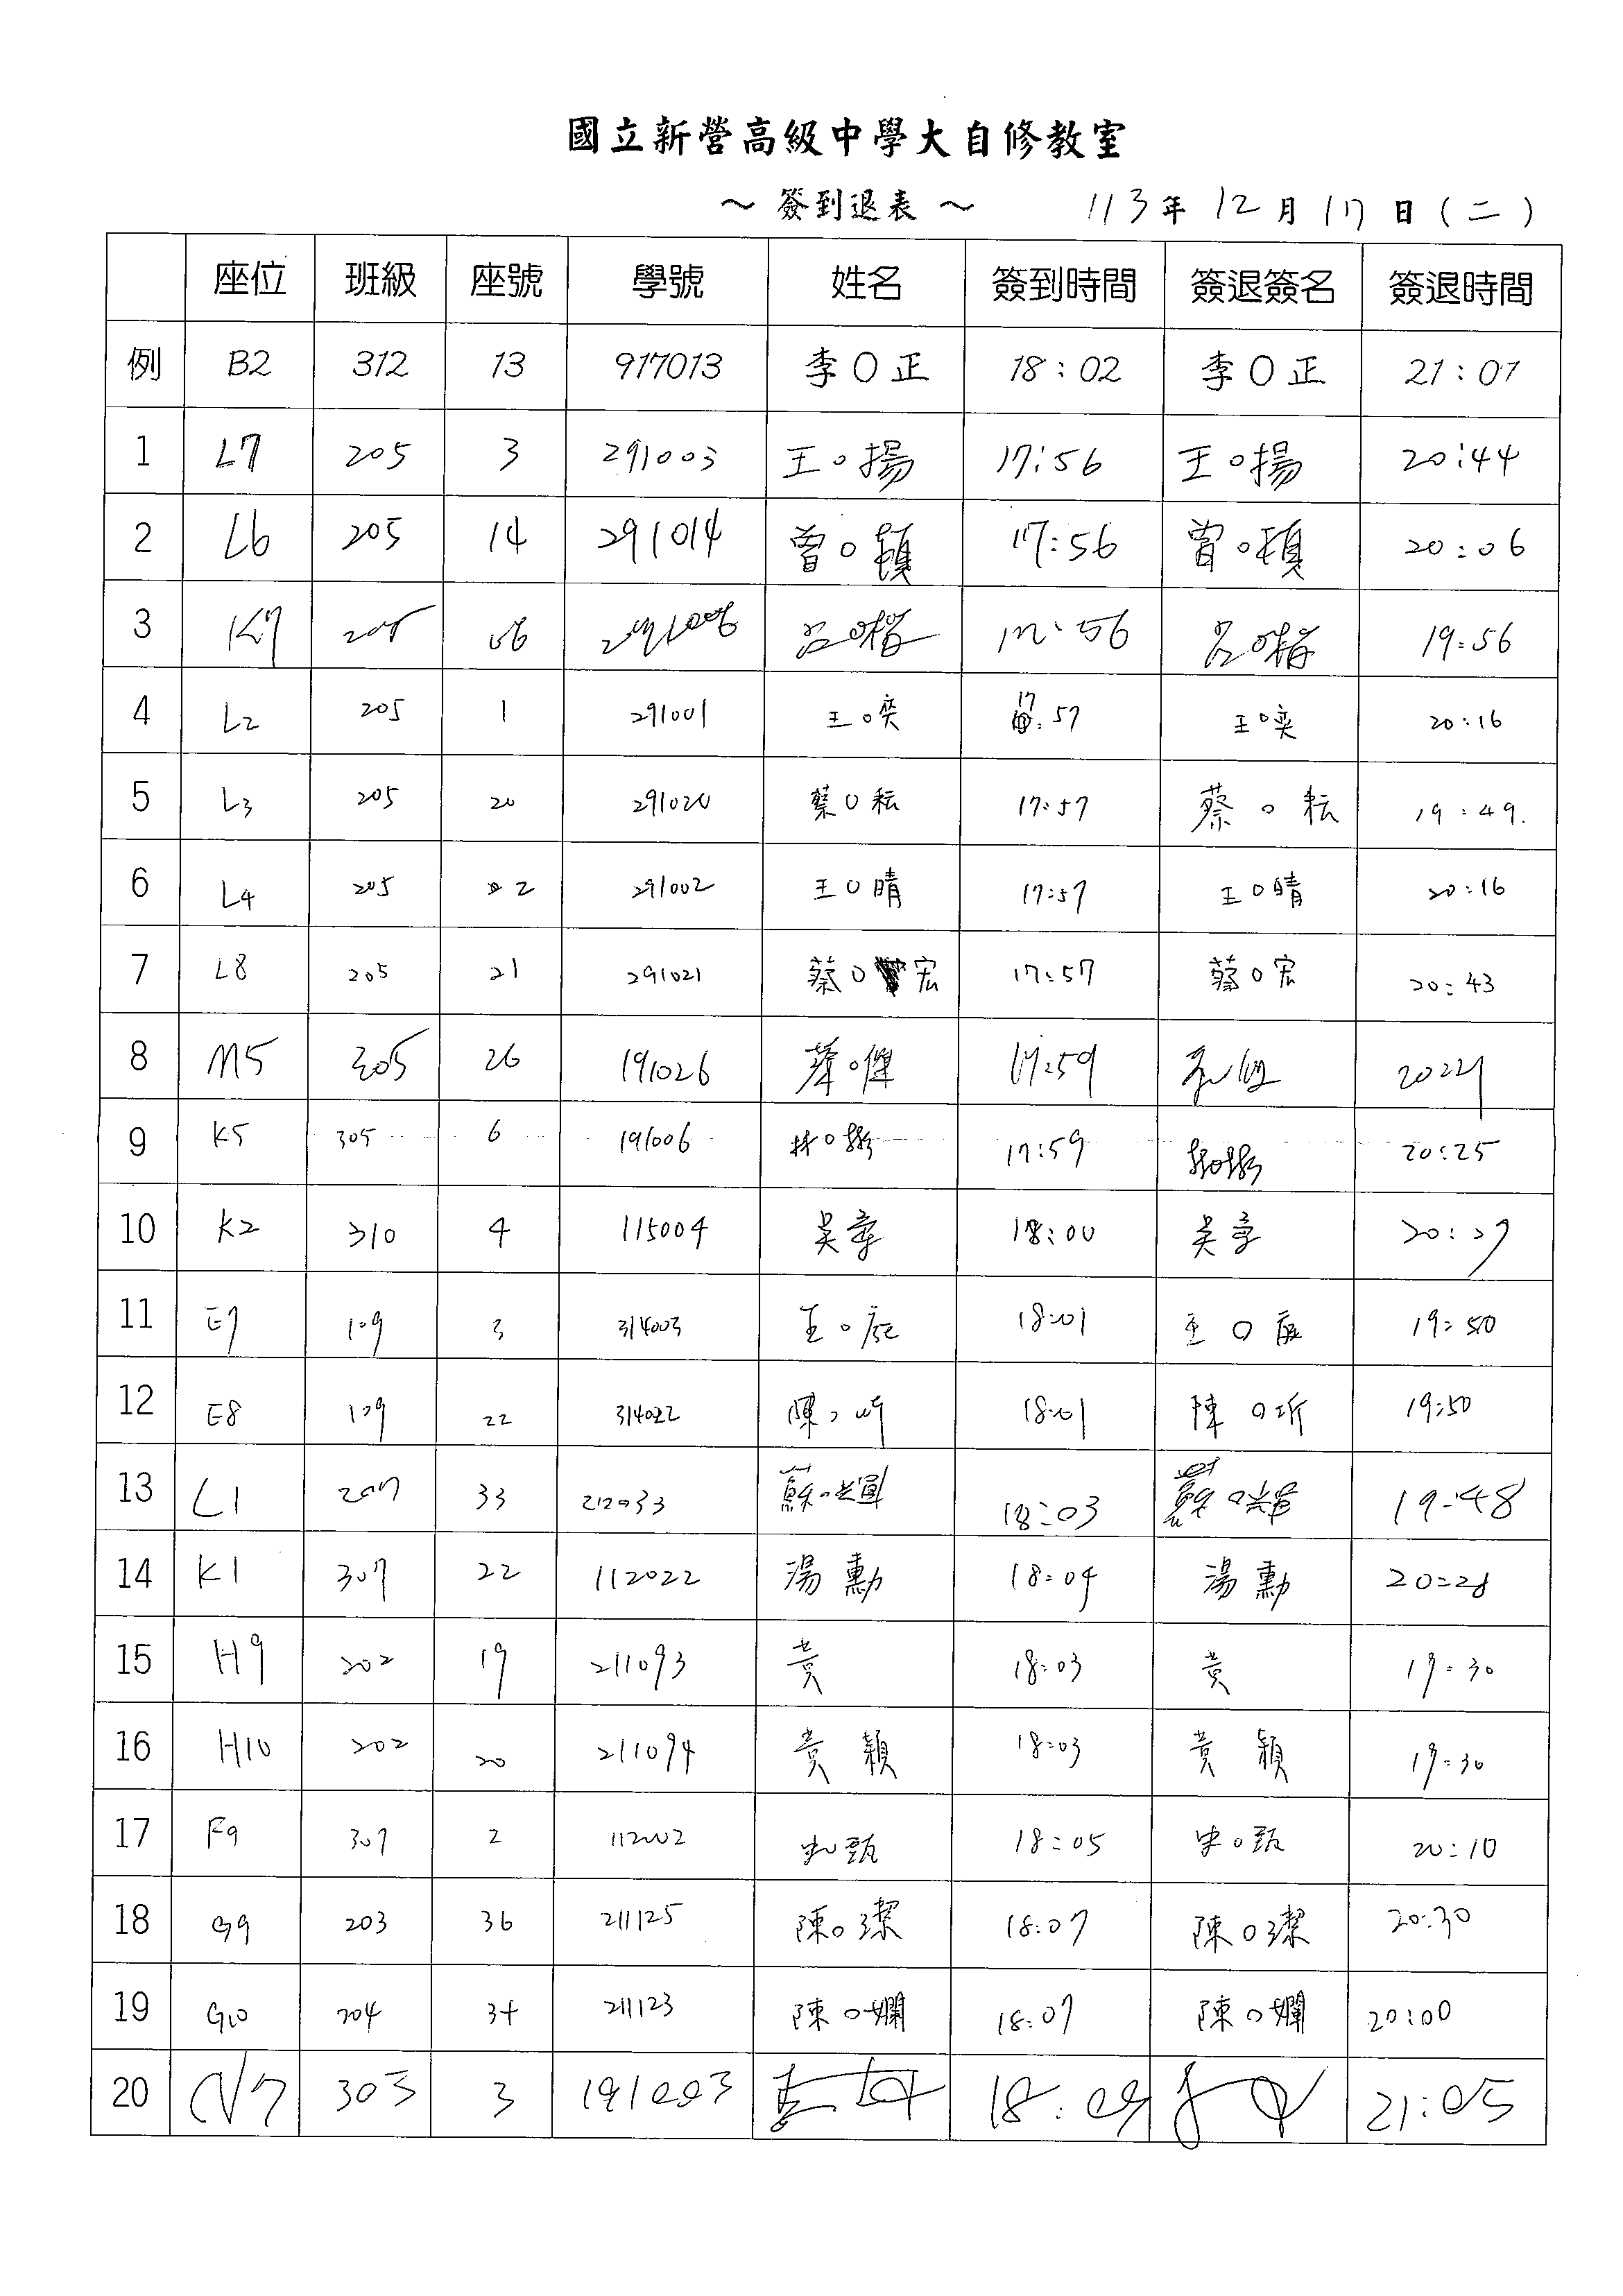 國立新營高級中學大自修教室
～ 簽到退表 ～ 113年 12月 17日(二)
座位 班級 座號 學號 姓名 簽到時間 簽退簽名 簽退時間
例 B2 312 13 917013 李O正 18:02 李O正 21:01
1 L7 205 3 291003 王O揚 17:56 王O揚 20:44
2 L6 205 14 291014 曾O頎 17:56 曾O頎 20:06
3 K7 205 06 291006 呂O 17:56 呂O 19:56
4 L2 205 1 291001 王O奕 17:57 王O奕 20:16
5 L3 205 20 291020 蔡O耘 17:57 蔡O耘 19:49.
6 L4 205 2 291002 王O晴 17:57 王O晴 20:16
7 L8 205 21 291021 蔡O宏 17:57 蔡O宏 20:43
8 M5 305 26 191026 O傑 17:59
9 K5 305 6 191006 林O 17:59 20:25
10 K2 310 4 115004 吳 18:00 吳 20:27
11 E7 109 3 314003 王O 18:01 王O 19:50
12 E8 109 22 314022 陳 18:01 陳O 19:50
13 L1 207 33 212033 蘇O輝 18:03 蘇O輝 19:48
14 K1 307 22 112022 湯勳 18:04 湯勳 20:28
15 H9 202 19 211093 黃 18:03 黃 19:30
16 H10 202 20 211094 黃穎 18:03 黃穎 19:30
17 F9 307 2 112002 甄 18:05 O甄 20:10
18 G9 203 36 211125 陳O潔 18:07 陳O潔 20:30
19 G10 204 34 211123 陳O嫻 18:07 陳O嫻 20:00
20 N7 303 3 191003 18:09 21:05